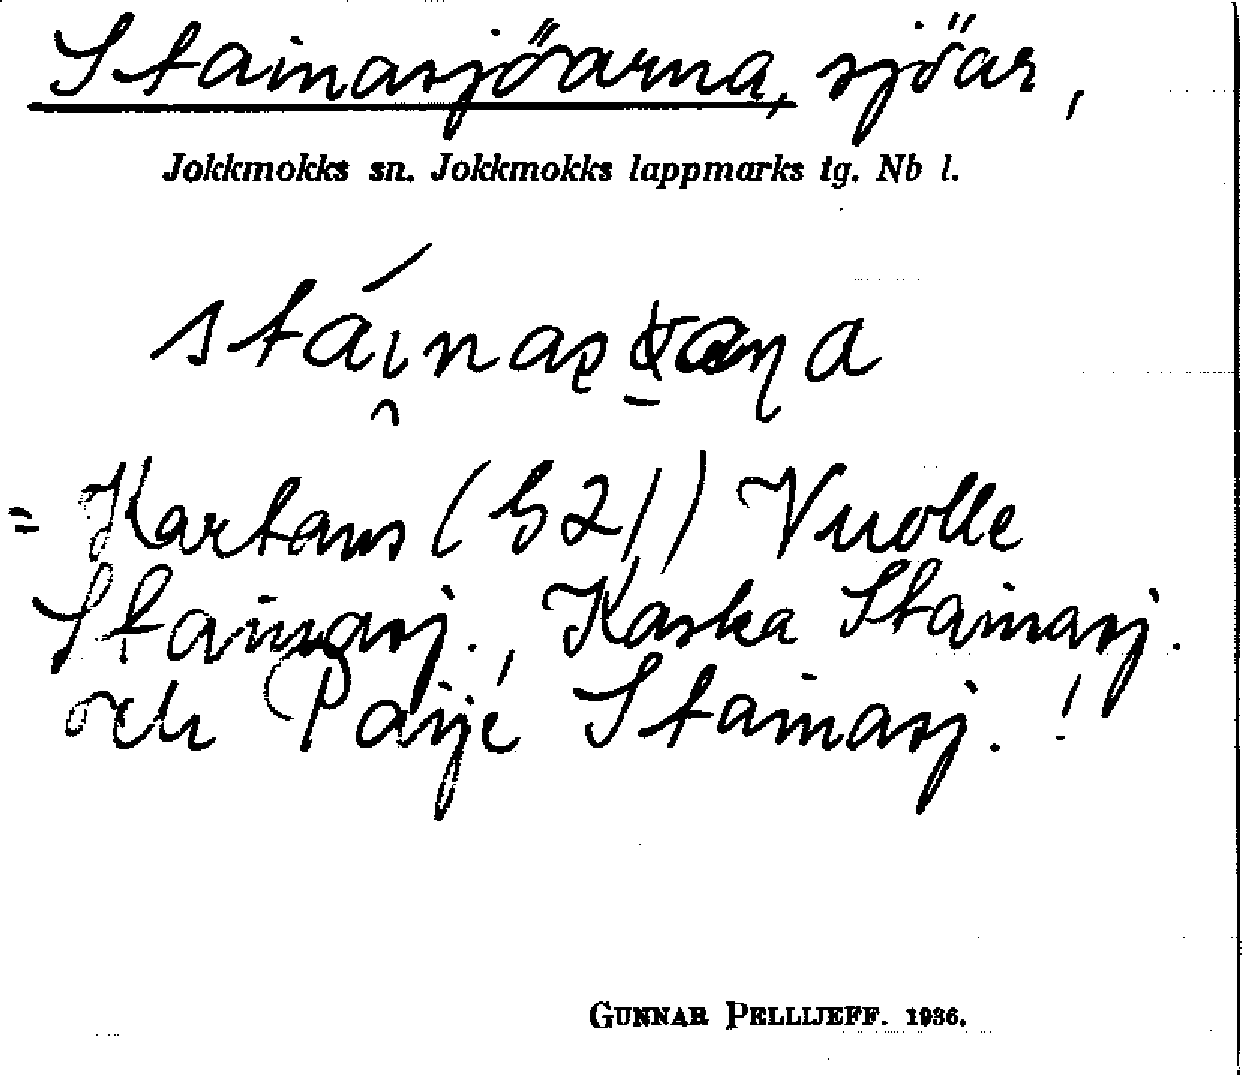 Stainasjöarna, sjöar,
Jokkmokks sn. Jokkmokks lappmarks tg. Nb l.
= Kartans (b21) Vuolle
Stainasj., Kaska Stainasj.
och Parje Stainasj.!
GUNNAR PELLIJEFF. 1936.